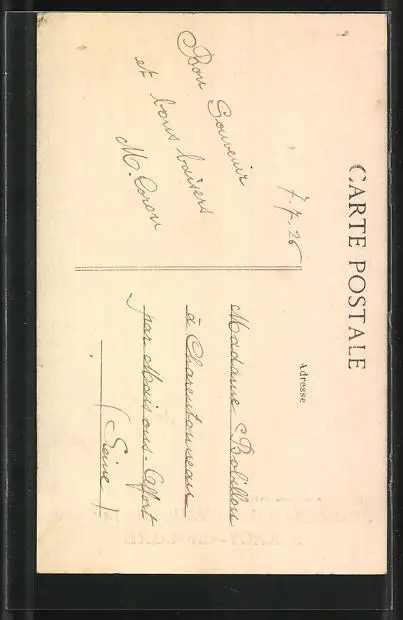 CARTE POSTALE
Adresse
7.7.26
Bon Souvenir
et bons baisers
M. Coron
Madame Bobillon
à Charentonneau
par Maisons-Alfort
(Seine)